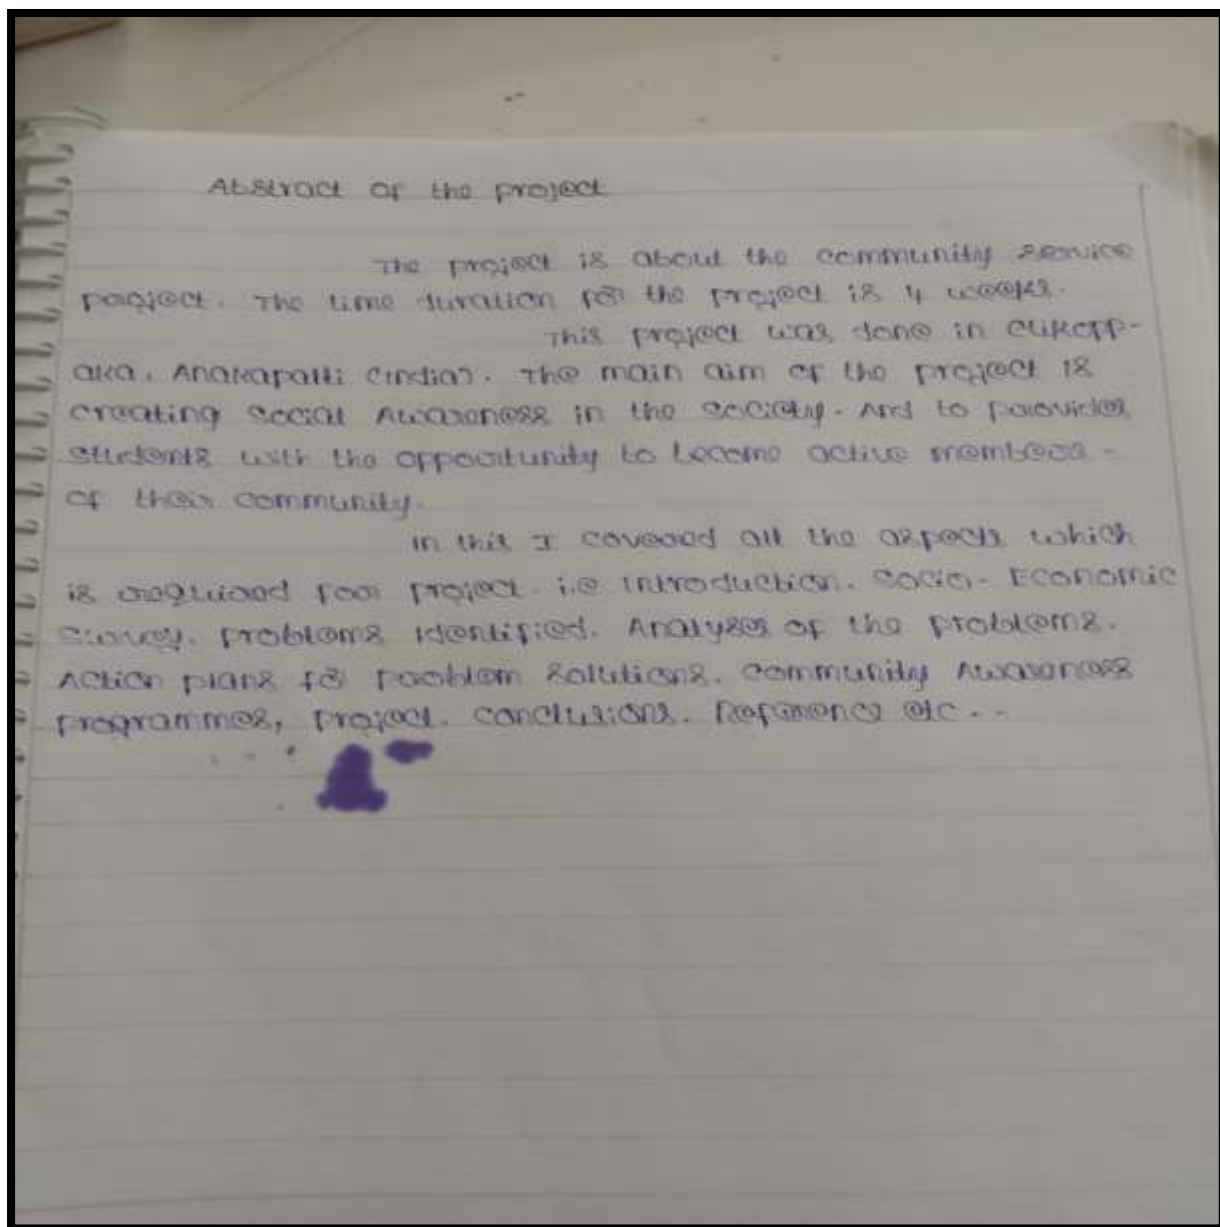 Abstract of the project
The project is about the community service
project. The time duration for the project is 4 weeks.
This project was done in Etikopp-
aka, Anakapalli (India). The main aim of the project is
creating social Awareness in the society. And to provides
students with the opportunity to become active members -
of their community.
In this I covered all the aspects which
is required for project. i.e Introduction. Socio - Economic
Survey. problems Identified. Analyses of the problems.
Action plans for problem solutions. Community Awareness
programmes, project. conclusions. Reference etc . .